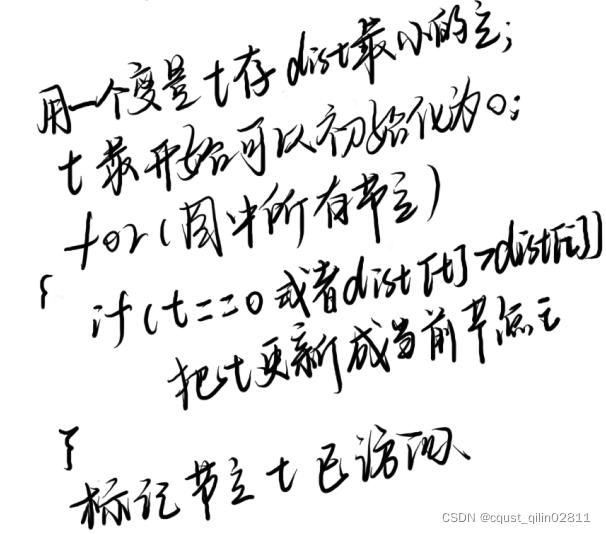 用一个变量t存dist最小的点;
t最开始可以初始化为0;
for(图中所有节点)
{
if(t==0或者dist[t]>dist[i])
把t更新成当前节点i
}
标记节点t已访问
CSDN @cqust_qilin02811